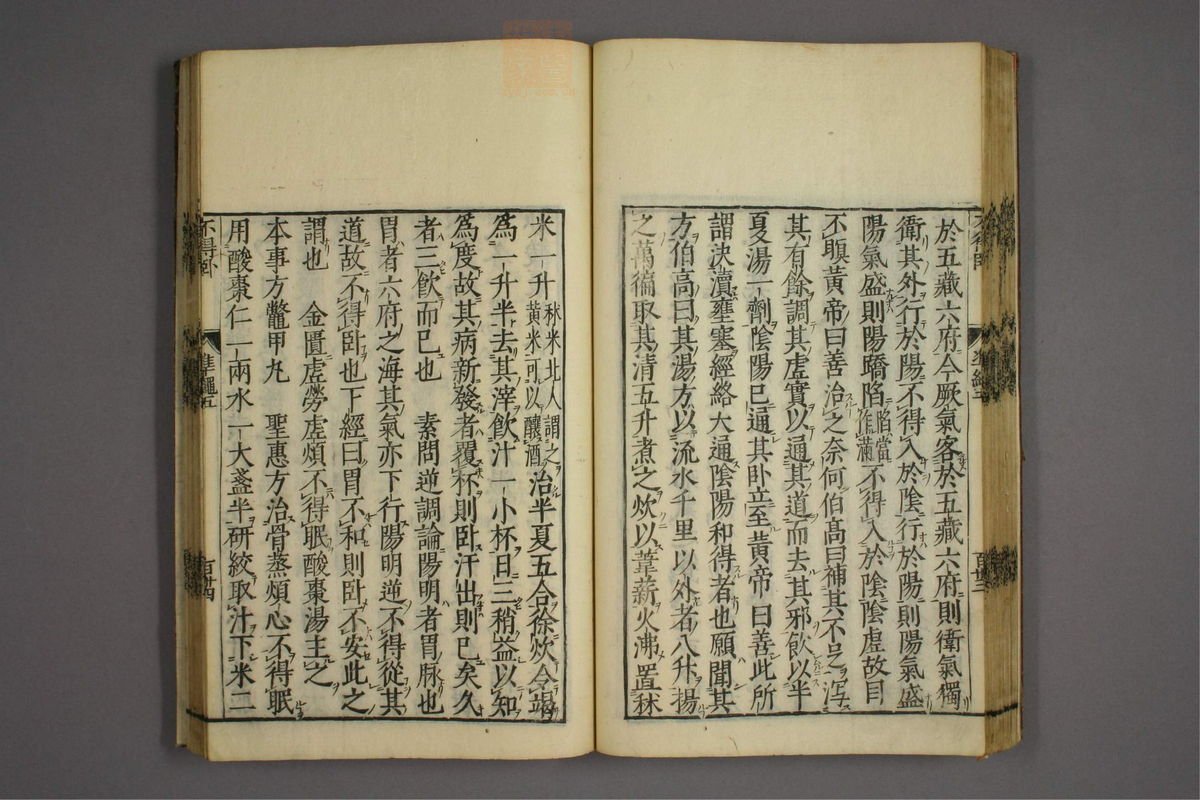 於五藏六府今厥氣客於五藏六府則衛氣獨
衛其外行於陽不得入於陰行於陽則陽氣盛
陽氣盛則陽蹻陷陷當作滿不得入於陰陰虛故目
不瞑黃帝曰善治之奈何伯髙曰補其不足瀉
其有餘調其虛實以通其道而去其邪飲以半
夏湯一劑陰陽已通其卧立至黃帝曰善此所
謂決瀆壅塞經絡大通陰陽和得者也願聞其
方伯高曰其湯方以流水千里以外者八升揚
之萬徧取其清五升煮之炊以葦薪火沸置秫
米一升秫米北人謂之黃米可以釀酒治半夏五合徐炊令竭
爲一升半去其滓飲汁一小杯日三稍益以知
爲度故其病新發者覆杯則卧汗出則已矣久
者三飲而已也　素問逆調論陽明者胃脉也
胃者六府之海其氣亦下行陽明逆不得從其
道故不得卧也下經曰胃不和則卧不安此之
謂也　金匱虛勞虛煩不得眠酸棗湯主之
本事方鼈甲丸　聖惠方治骨蒸煩心不得眠
用酸棗仁一兩水一大盞半研絞取汁下米二
不得卧
準繩五
百廿四